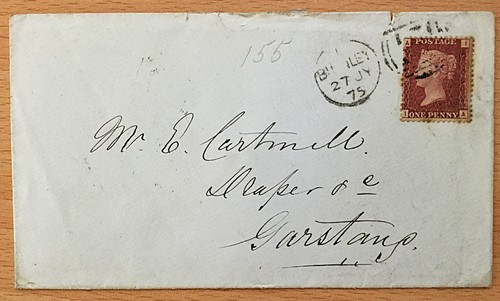 155
BURNLEY
27 JY
75
POSTAGE
ONE PENNY
Mr. E. Cartmell.
Draper &c
Garstang.